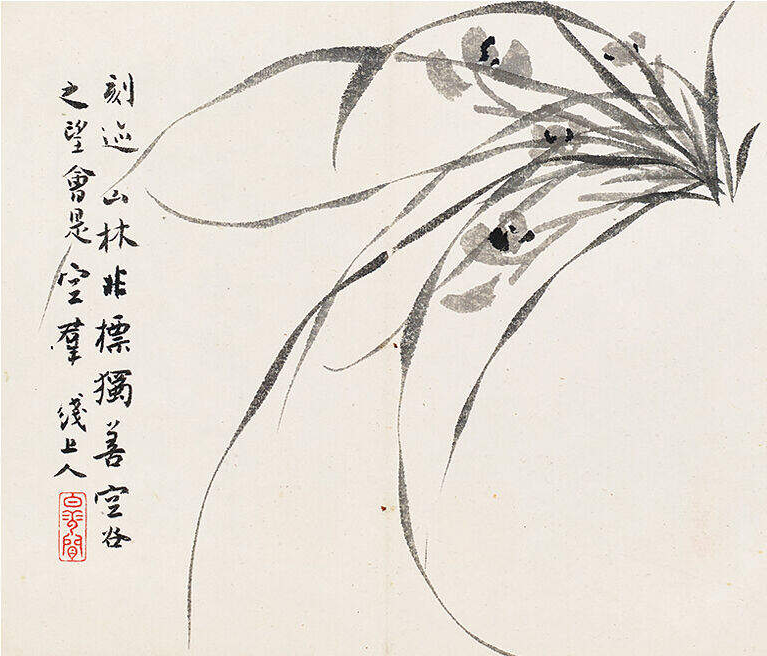 刻迹山林非標獨善空谷
之望會是空羣 綫上人
白云間